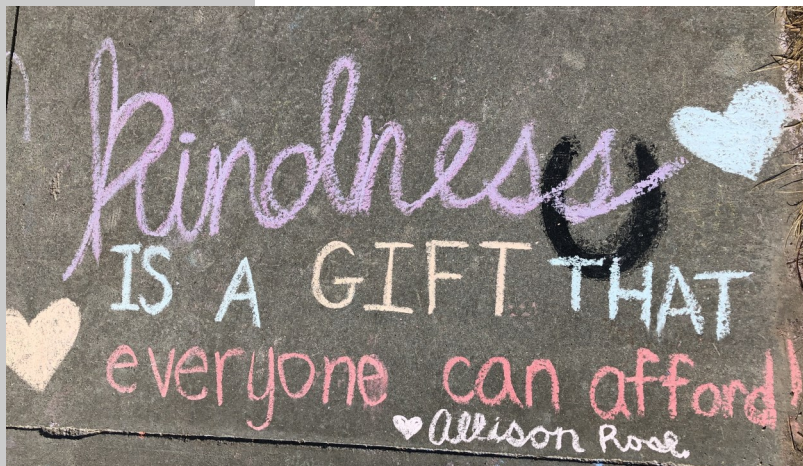 kindness
IS A GIFT THAT
everyone can afford!
Allison Rose